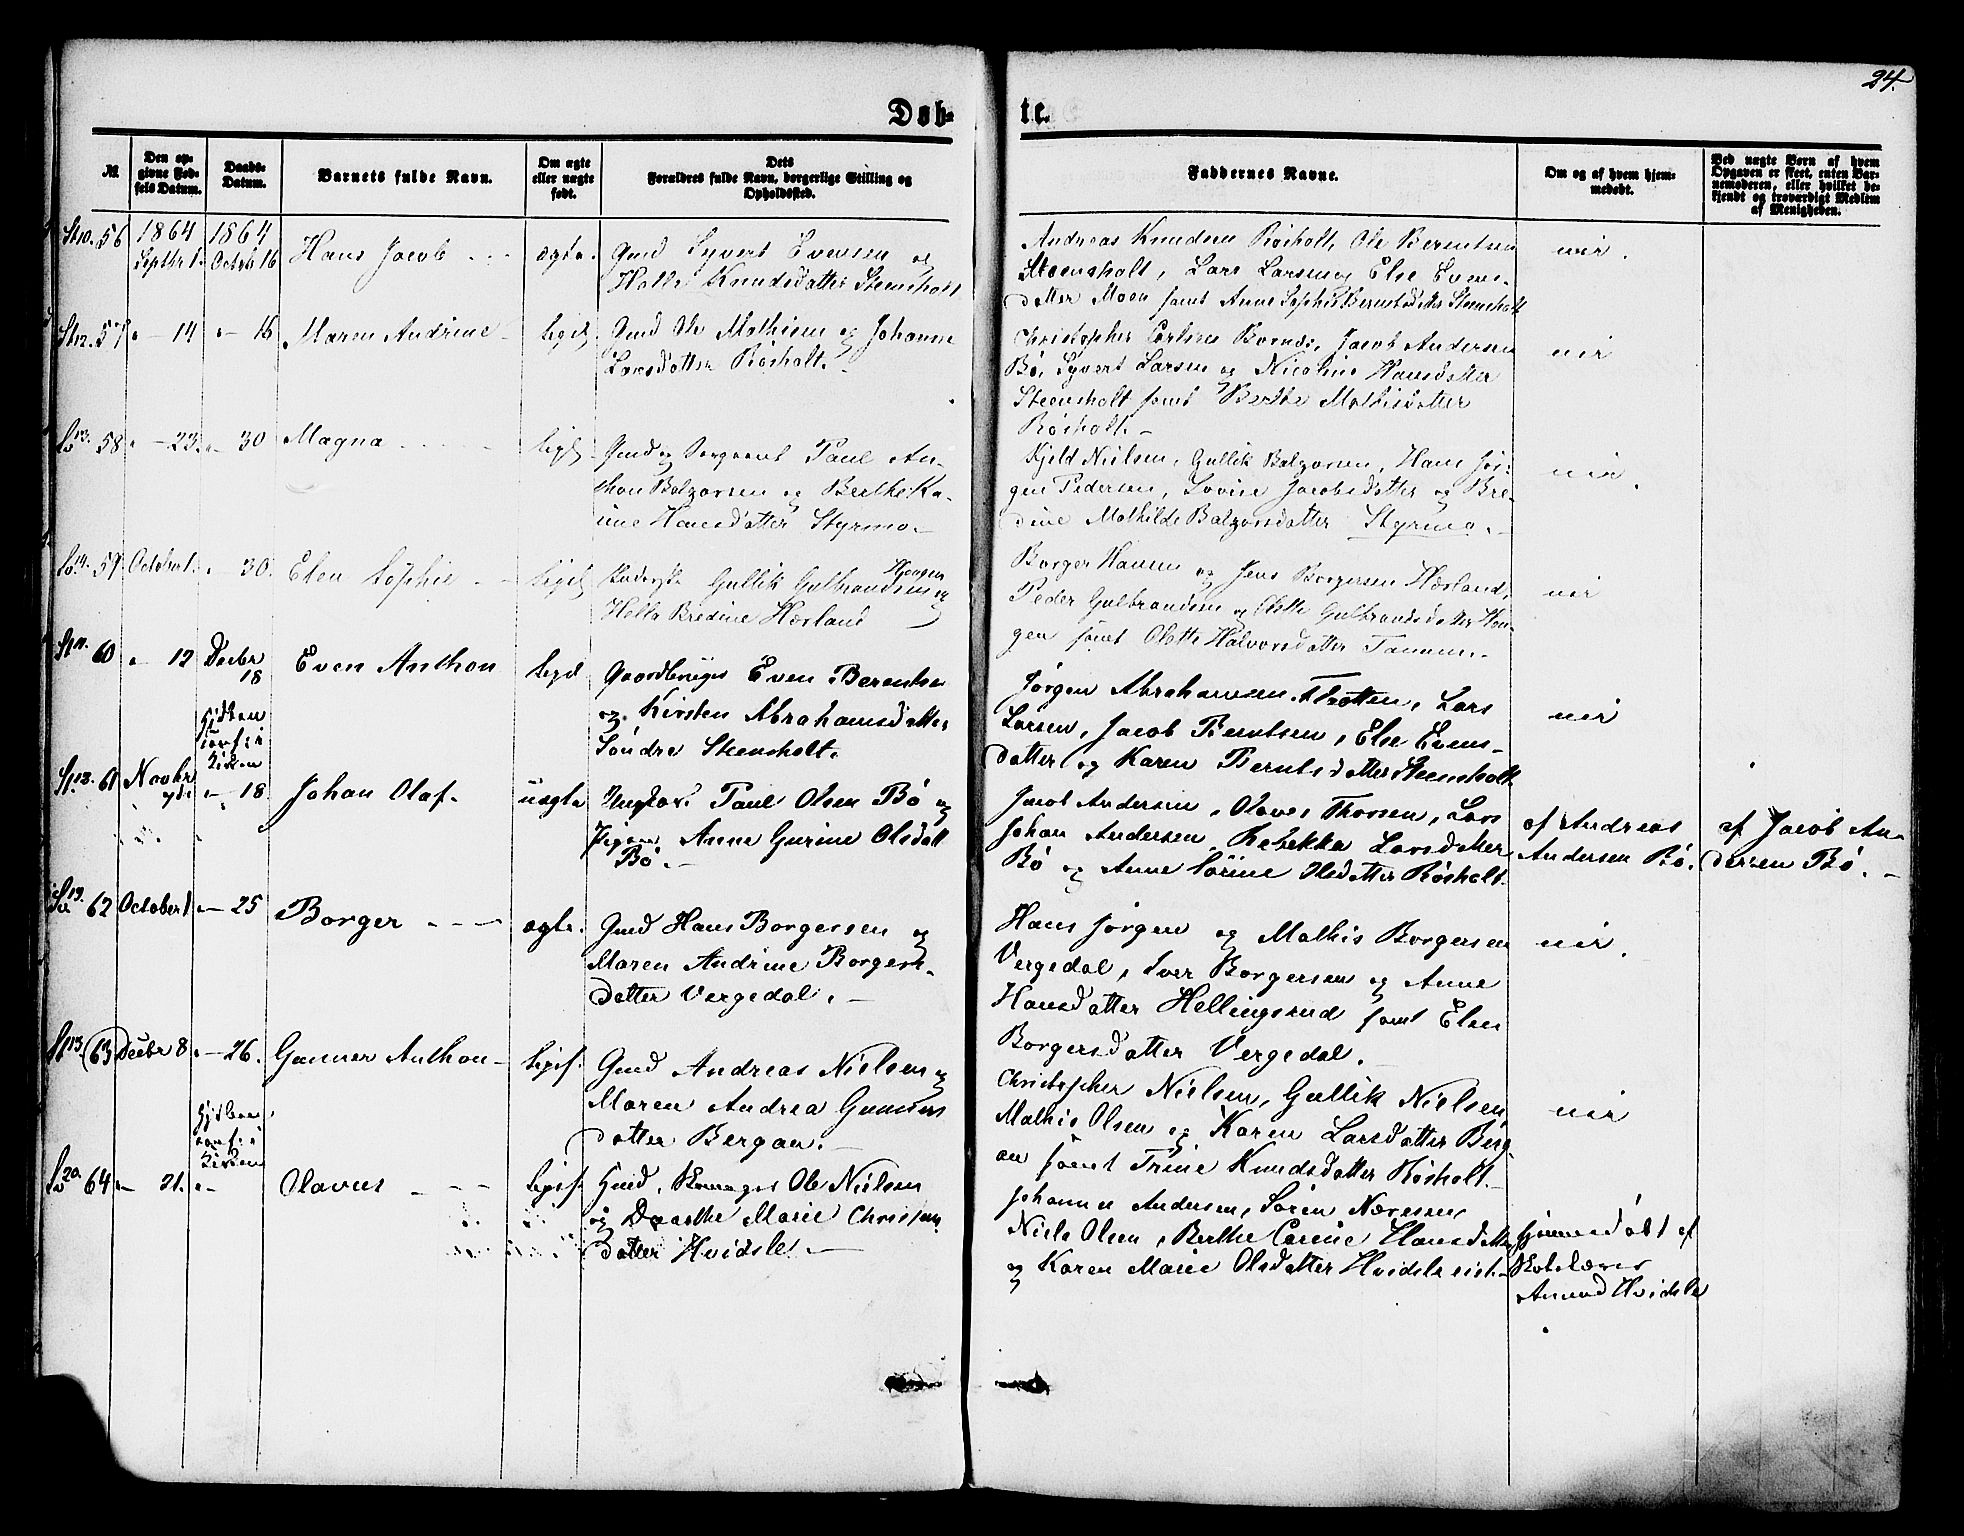 24.
Døb- te.
№.
Den op-
givne Fød-
sels Datum.
Daabs-
Datum.
Barnets fulde Navn.
Om ægte
eller uægte
født.
Dets
Forældres fulde Navn, borgerlige Stilling og
Opholdssted.
Faddernes Navne.
Om og af hvem hjem-
medøbt.
Ved uægte Børn af hvem
Opgaven er skeet, enten Bar-
nemoderen, eller hvilket be-
kjendt og troværdigt Medlem
af Menigheden.
56
1864
Septbr 1.
1864
Octob 16
Hans Jacob
ægte.
Gmd Syvert Evensen og
Helle Knudsdatter Steensholt
Andreas Knudsen Røsholt, Ole Berentsen
Steensholt, Lars Larsen og Else Evens-
datter Moen samt Anne Sophie Berntsdatter Steensholt
57 " - 14 " - 16 Maren Andrine
Gmd Ole Mathisen og Johanne
Larsdatter Røsholt.
Christopher
Jacob Andersen
Bö, Syvert Larsen og Nicoline Hansdatter
Steensholt samt Berthe Mathisdatter
Røsholt.
58 " - 23. " - 30 Magna
Gmd og Sergeant Paul An-
thon Balzersen og Berthe Ka-
rine Hansdatter Styrmo.
Kjeld Nielsen, Gullik Balzersen, Hans Jör-
gen Pedersen, Lovise Jacobsdatter og Bre-
dine Mathilde Balzersdatter Styrmo.
59 October 1. " - 30. Elen Sophie
Gullik Gulbrandsen Hougen og
Helle Bredine Hæsland
Borger Hansen og Jens Borgersen Hæsland,
Peder Gulbrandsen og Olette Gulbrandsdatter Hou-
gen samt Olette Halvorsdatter Tammen.
60 " - 12 Decbr
18
Even Anthon
Gaardbruger Even Berentsen
og Kirsten Abrahamsdatter
Söndre Steensholt.
Jörgen Abrahamsen Flåtten, Lars
Larsen, Jacob Berntsen, Else Evens-
datter og Karen Berntsdatter Steensholt
61 Novbr
7de " - 18 Johan Olaf.
uægte
Ungkar. Paul Olsen Bö og
Pigen Anne Gurine Olsdatt
Bö.
Jacob Andersen, Olaves Thorsen, Lars
Johan Andersen, Rebekka Larsdatter
Bö og Anne Sörine Olsdatter Røsholt.
af Andreas
Andersen Bö.
af Jacob An-
dersen Bö.
62 October 1 " - 25 Borger
ægte.
Gmd Hans Borgersen og
Maren Andrine Borgers-
datter Vergedal.
Hans Jörgen og Mathis Borgersen
Vergedal, Iver Borgersen og Anne
Hansdatter Hellingsrud samt Elen
Borgersdatter Vergedal.
63 Decbr 8 " - 26. Gunner Anthon
Gmd Andreas Nielsen og
Maren Andrea Gunners
datter Bergan.
Christopher Nielsen, Gullik Nielsen
Mathis Olsen og Karen Larsdatter Berg-
an samt Trine Knudsdatter Røsholt.
64 " - 21. " - Olavus
Ole Nielsen
og Dorthe Marie Christens
datter Hvidsle.
Johannes Andersen, Sören
Niels Olsen, Berthe Carine Hansdatter
og Karen Marie Olsdatter Hvidsle
hjemmedöbt af
Skolelærer
Amund Hvidsle